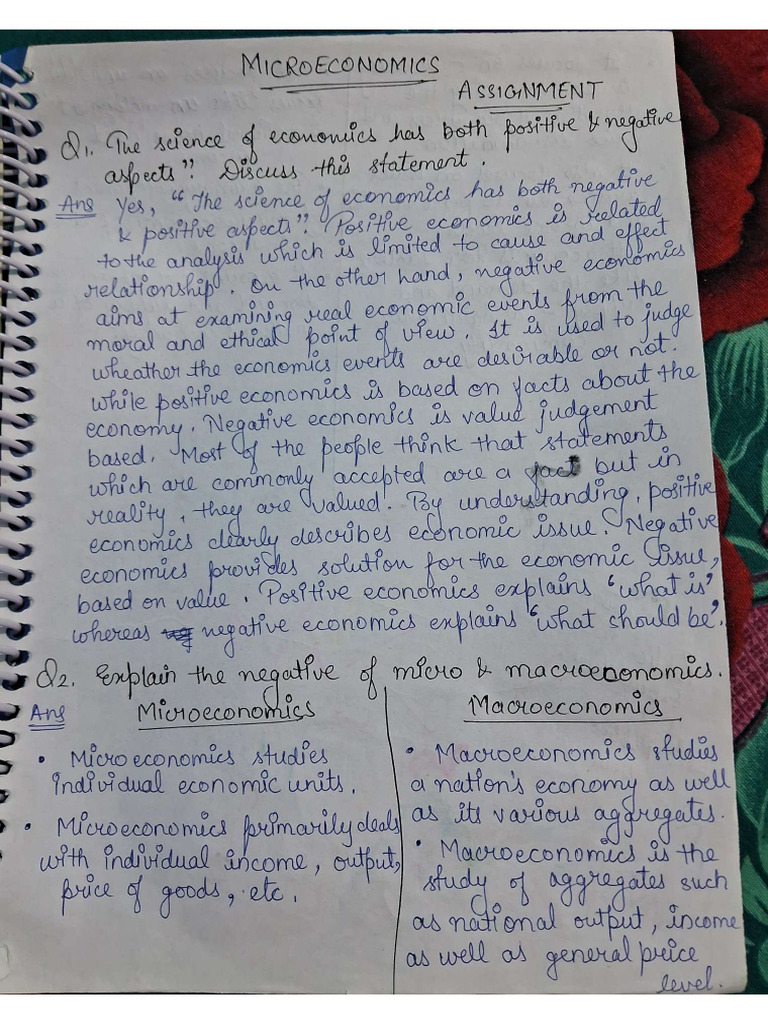 MICROECONOMICS
ASSIGNMENT
Q1. The science of economics has both positive & negative
aspects". Discuss this statement.
Ans Yes, "The science of economics has both negative
& positive aspects". Positive economics is related
to the analysis which is limited to cause and effect
relationship. On the other hand, negative economics
aims at examining real economic events from the
moral and ethical point of view. It is used to judge
wheather the economics events are desirable or not.
while positive economics is based on facts about the
economy. Negative economics is value judgement
based. Most of the people think that statements
which are commonly accepted are a fact but in
reality, they are valued. By understanding, positive
economics clearly describes economic issue. Negative
economics provides solution for the economic issue,
based on value. Positive economics explains 'what is'
whereas negative economics explains 'what should be'.
Q2. Explain the negative of micro & macroeconomics.
Ans Microeconomics
• Microeconomics studies
individual economic units.
• Microeconomics primarily deals
with individual income, output,
price of goods, etc.
Macroeconomics
• Macroeconomics studies
a nation's economy as well
as its various aggregates.
• Macroeconomics is the
study of aggregates such
as national output, income
as well as general price
level.